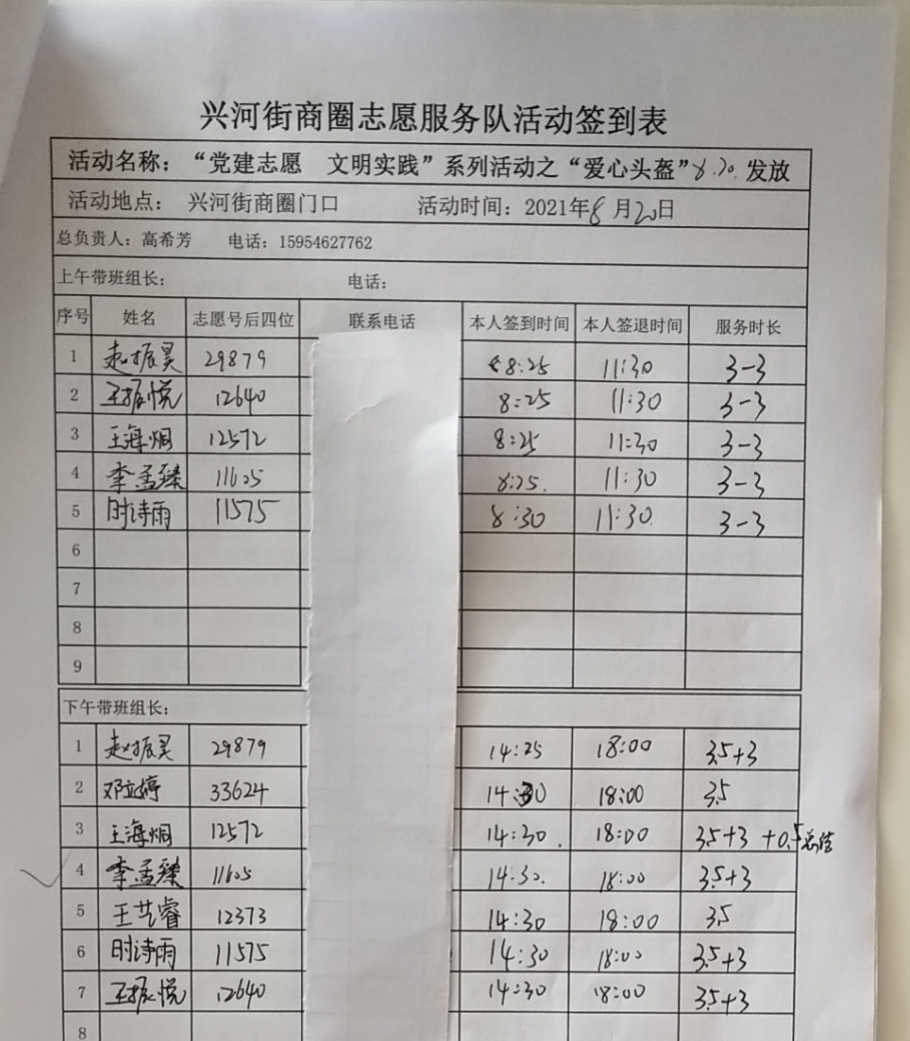 兴河街商圈志愿服务队活动签到表
活动名称：“党建志愿 文明实践”系列活动之“爱心头盔”8.20.发放
活动地点： 兴河街商圈门口 活动时间：2021年8月20日
总负责人：高希芳 电话：15954627762
上午带班组长： 电话：
序号 姓名 志愿号后四位 联系电话 本人签到时间 本人签退时间 服务时长
1 赵振昊 29879 8:25 11:30 3-3
2 王振悦 12640 8:25 11:30 3-3
3 王海烟 12572 8:25 11:30 3-3
4 李孟臻 11605 8:25. 11:30 3-3
5 时诗雨 11575 8:30 11:30. 3-3
6
7
8
9
下午带班组长：
1 赵振昊 29879 14:25 18:00 3.5+3
2 邓立婷 33624 14:30 18:00 3.5
3 王海烟 12572 14:30. 18:00 3.5+3 +0.5总结
4 李孟臻 11605 14:30. 18:00 3.5+3
5 王艺睿 12373 14:30 18:00 3.5
6 时诗雨 11575 14:30 18:00 3.5+3
7 王振悦 12640 14:30 18:00 3.5+3
8